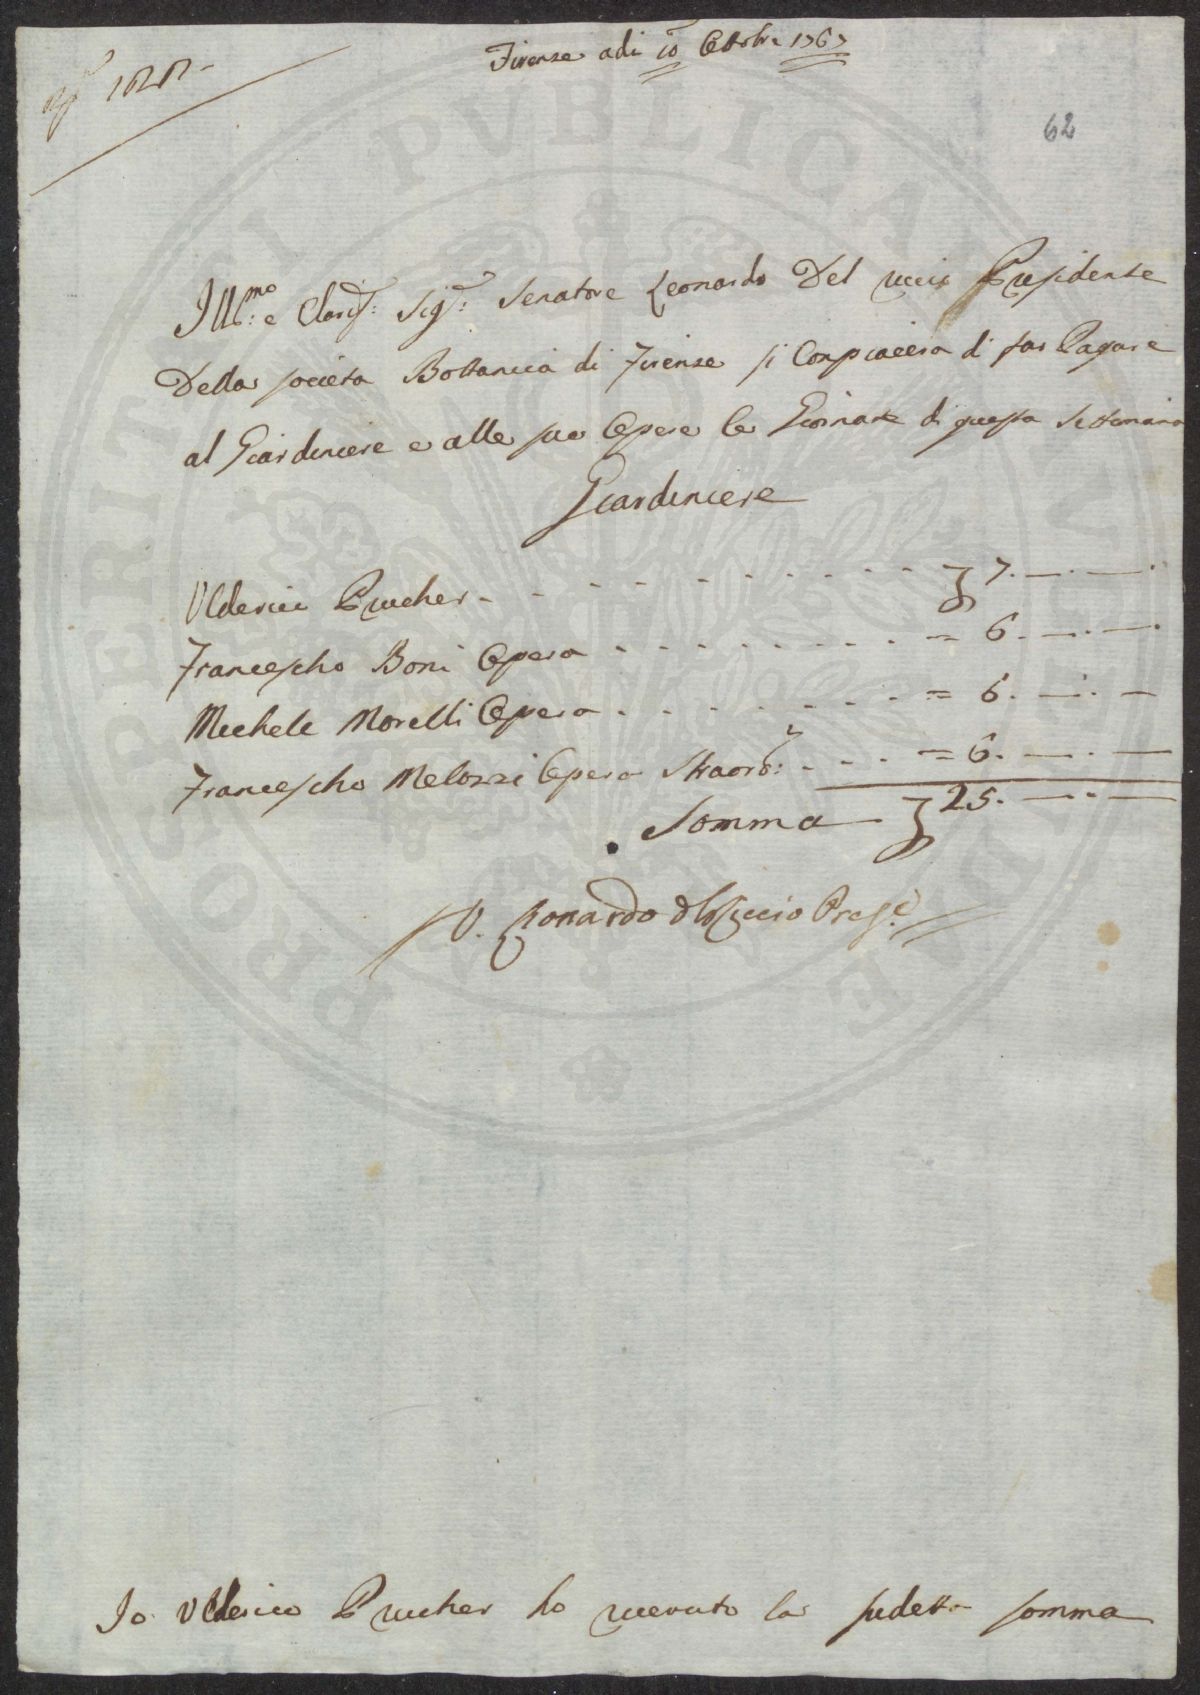 Firenze adi 10 Ottobre 1767
62
Ill.mo: e Claris.: Sig.: Senatore Leonardo Del riccio Presidente
Della società Bottanica di Firenze si Conpiacera di far Pagare
al Giardiniere e alle sue Opere le Giornate di questa settimana
Giardiniere
Ulderico Prucher - - - - - - - - - - 7. —.—.
Francescho Boni Opera - - - - - - - = 6. —.—.
Michele Morelli Opera - - - - - - - = 6. —.—
Francescho Melozzi Opera Straord: - - - = 6. —.—
Somma 25. —.—
V. Leonardo del Riccio Pres.e
Io Ulderico Prucher ho riceuto la sudetta somma